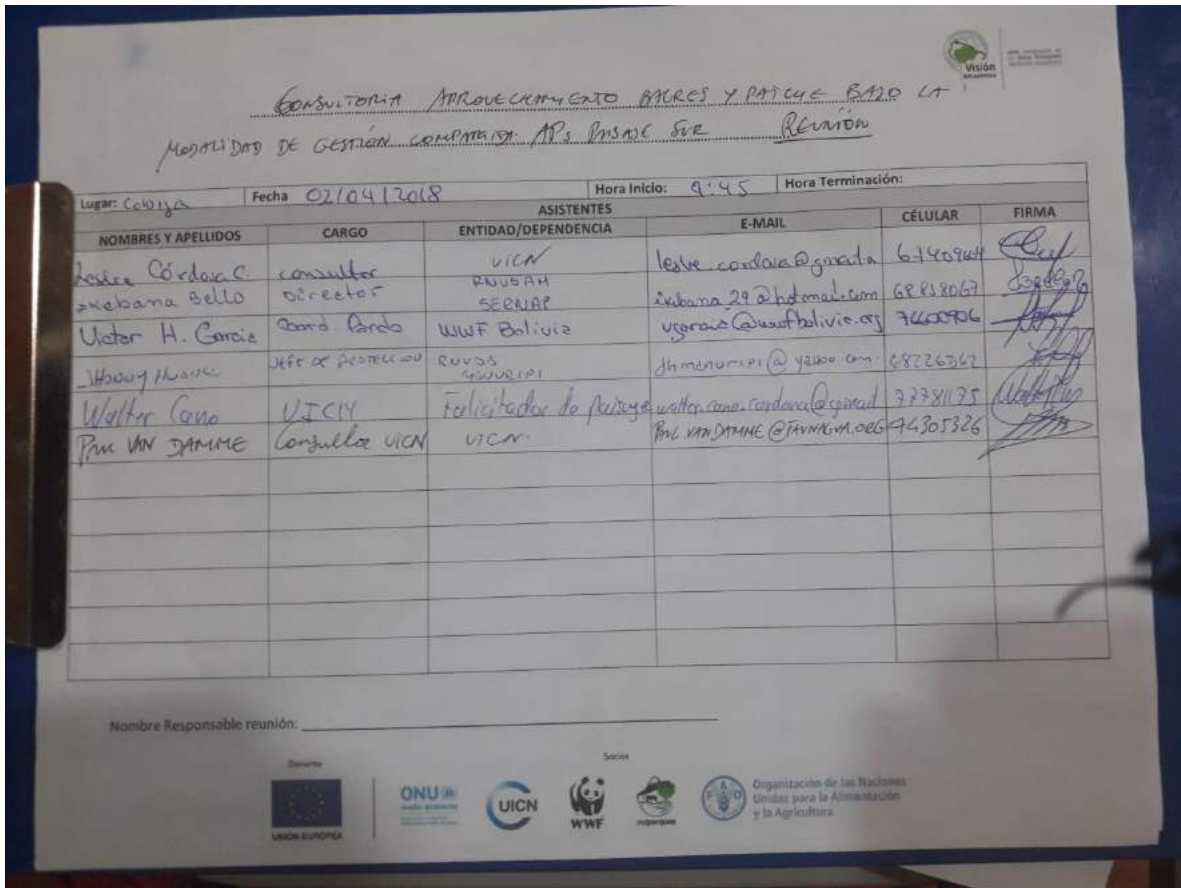 Visión
CONSULTORIA APROVECHAMIENTO BAGRES Y PAICHE BAJO LA
MODALIDAD DE GESTIÓN COMPARTIDA APs PAISAJE SUR REUNIÓN
Lugar: Cobija Fecha 02/04/2018 Hora Inicio: 9:45 Hora Terminación:
ASISTENTES
NOMBRES Y APELLIDOS CARGO ENTIDAD/DEPENDENCIA E-MAIL CÉLULAR FIRMA
Córdova C. consultor UICN 6740944
Bello Director SERNAP 68818067
Victor H. Garcia Coord Pando WWF Bolivia vgarcia@wwfbolivia.org 74600906
JEFE DE PROTECCION MANURIPI 68226362
Walter Cano UICN Facilitador de Paisaje walter.cano.cordova@gmail 77781175
PAUL VAN DAMME Consultor UICN UICN. PAUL.VANDAMME@FAUNAGUA.ORG 74305326
Nombre Responsable reunión:
Donante Socios
UNIÓN EUROPEA
ONU
medio ambiente
UICN
WWF
redparques
FAO
Organización de las Naciones
Unidas para la Alimentación
y la Agricultura